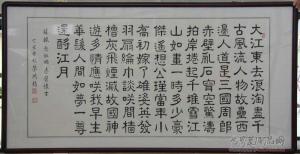 大江東去浪淘盡千
古風流人物故壘西
邊人道是三國周郎
赤壁亂石穿空驚濤
拍岸捲起千堆雪江
山如畫一時多少豪
傑遙想公瑾當年小
喬初嫁了雄姿英發
羽扇綸巾談笑間檣
櫓灰飛煙滅故國神
遊多情應咲我早生
華髮人間如夢一尊
還酹江月
蘇軾念奴嬌赤壁懷古